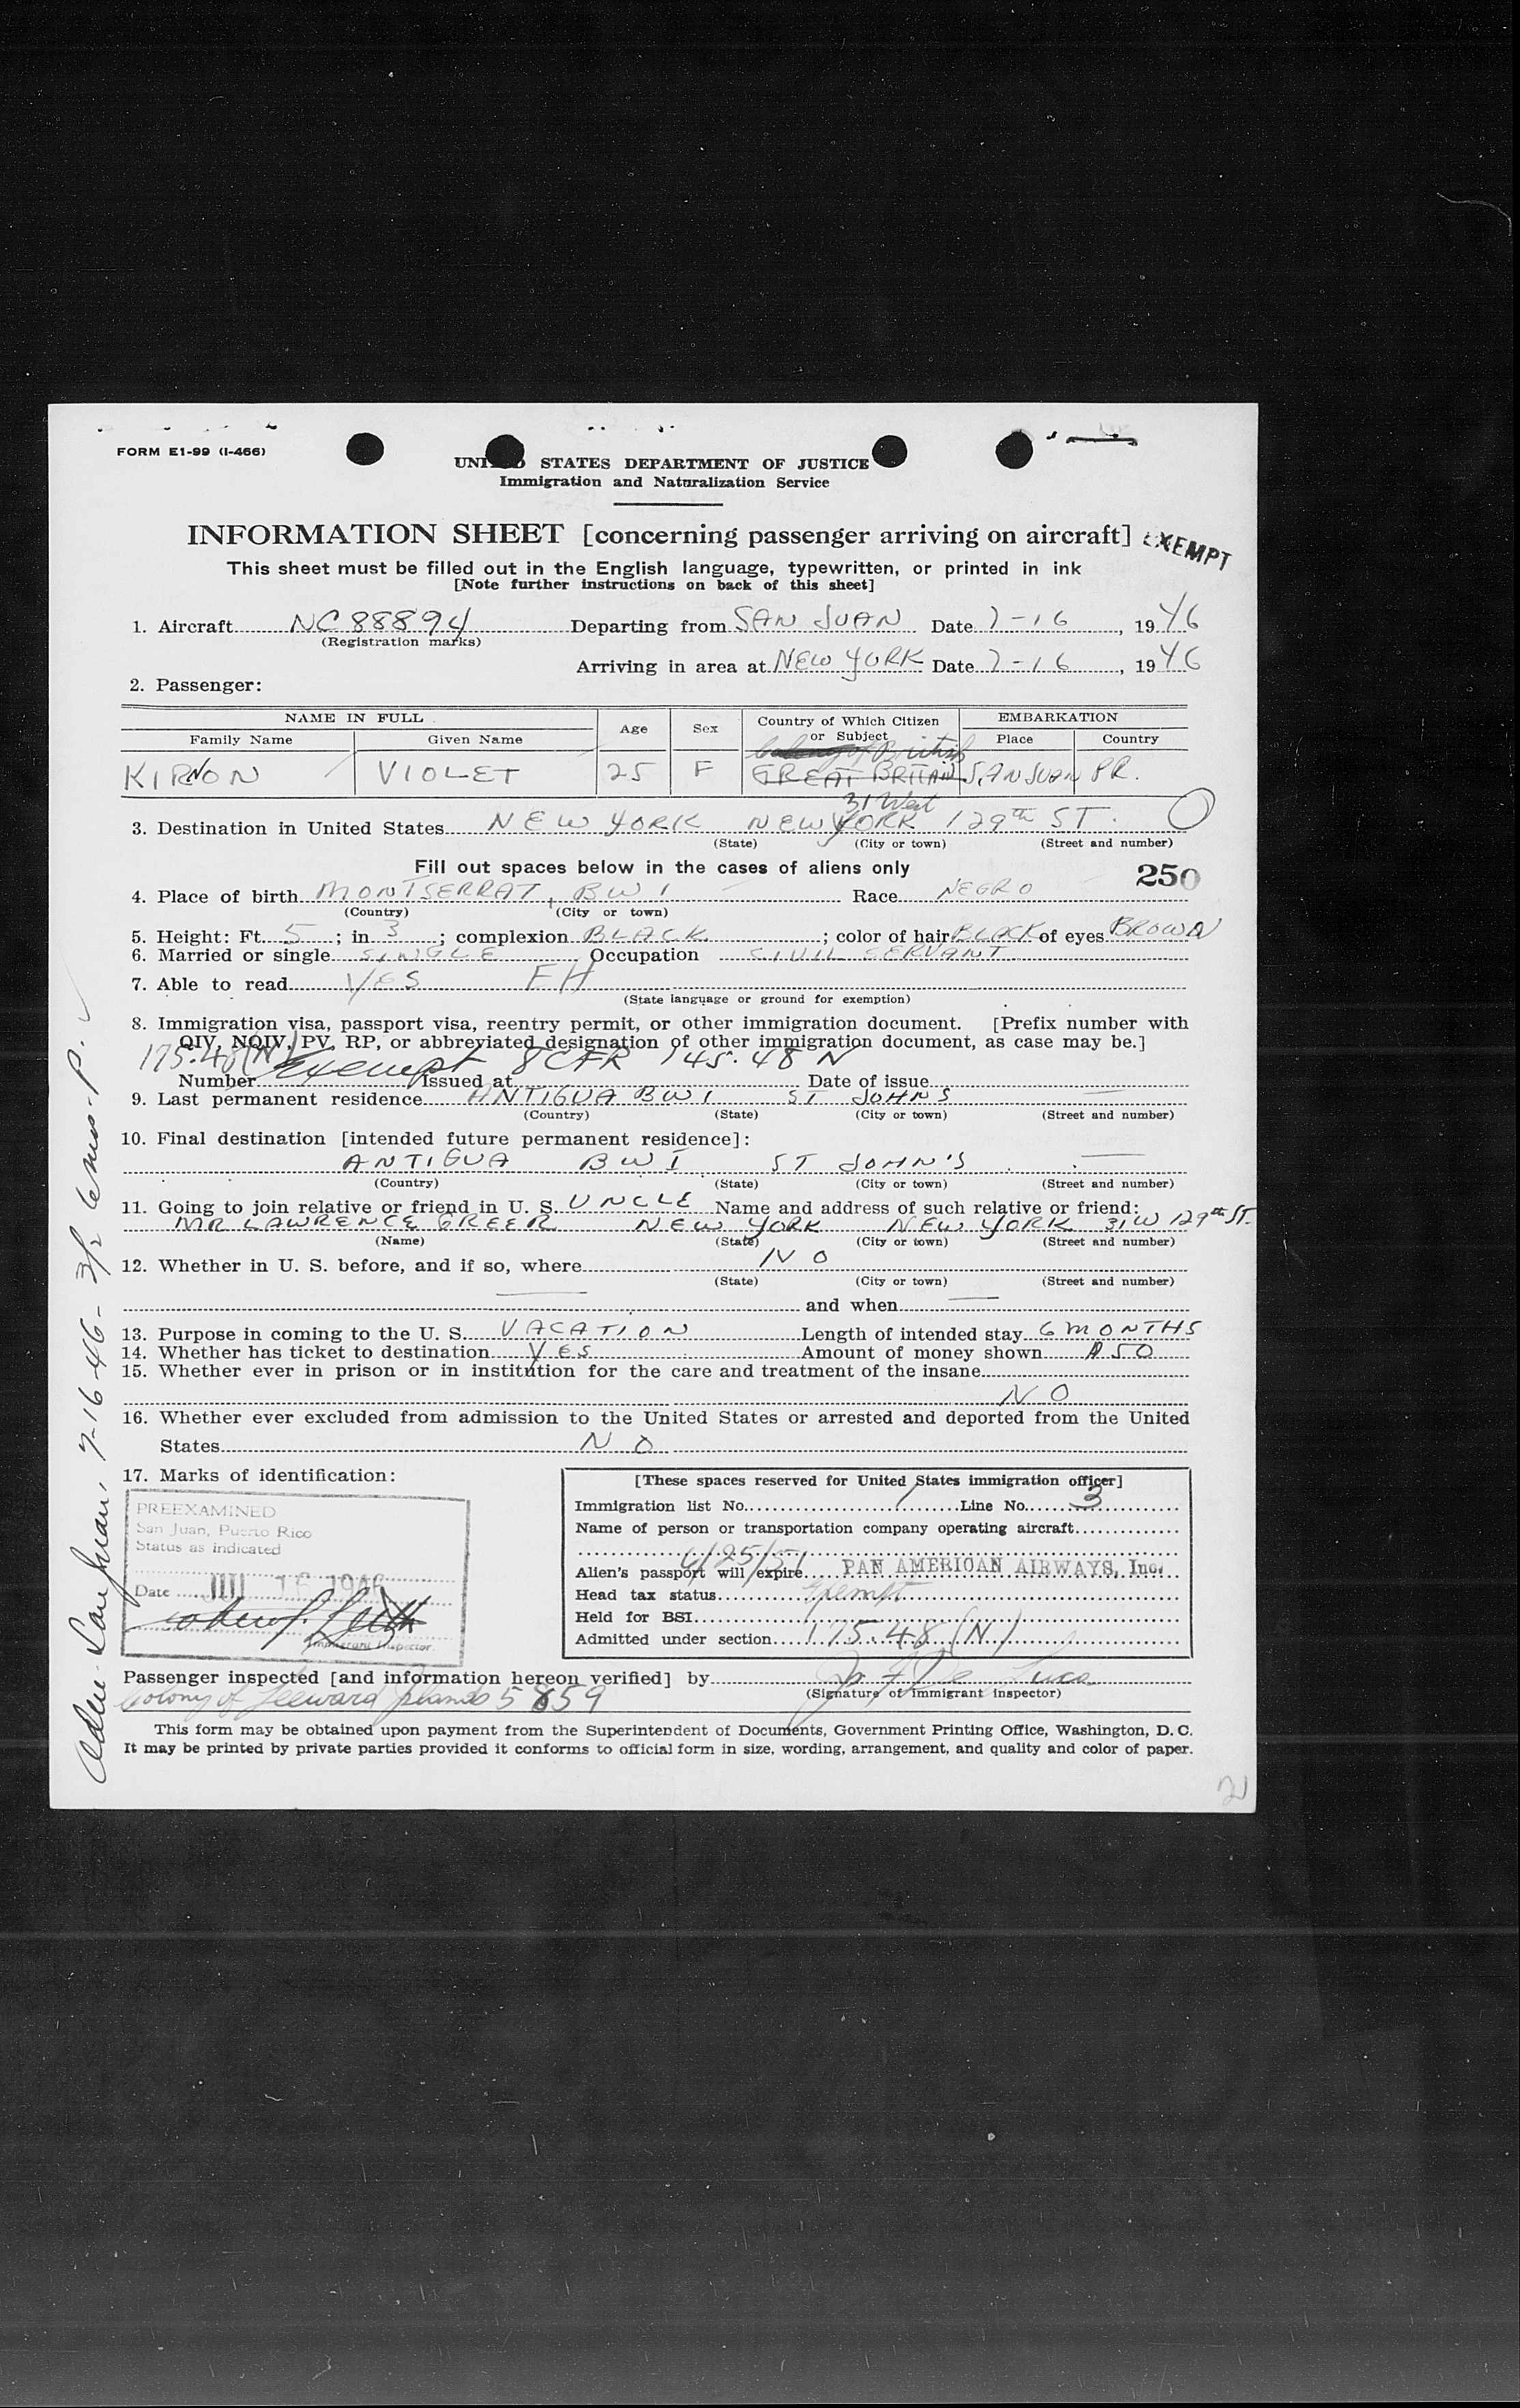 FORM E1-99 (I-466)
UNITED STATES DEPARTMENT OF JUSTICE
Immigration and Naturalization Service
INFORMATION SHEET [concerning passenger arriving on aircraft] EXEMPT
This sheet must be filled out in the English language, typewritten, or printed in ink
[Note further instructions on back of this sheet]
1. Aircraft NC 88894 Departing from SAN JUAN Date 7-16, 1946
(Registration marks)
Arriving in area at NEW YORK Date 7-16, 1946
2. Passenger:
NAME IN FULL Age Sex Country of Which Citizen or Subject EMBARKATION
Family Name Given Name Place Country
British
KIRNON VIOLET 25 F GREAT BRITAIN SAN JUAN PR.
31 West
3. Destination in United States NEW YORK NEW YORK 129th ST.
(State) (City or town) (Street and number)
Fill out spaces below in the cases of aliens only
250
4. Place of birth MONTSERRAT, BWI Race NEGRO
(Country) (City or town)
5. Height: Ft. 5; in 3; complexion BLACK; color of hair BLACK of eyes BROWN
6. Married or single SINGLE Occupation CIVIL SERVANT
7. Able to read YES EH
(State language or ground for exemption)
8. Immigration visa, passport visa, reentry permit, or other immigration document. [Prefix number with
QIV, NQIV, PV, RP, or abbreviated designation of other immigration document, as case may be.]
175.48(N) Exempt 8 CFR 145.48 N
Number Issued at Date of issue
9. Last permanent residence ANTIGUA BWI ST JOHNS —
(Country) (State) (City or town) (Street and number)
10. Final destination [intended future permanent residence]:
ANTIGUA BWI ST JOHN'S —
(Country) (State) (City or town) (Street and number)
11. Going to join relative or friend in U. S. UNCLE Name and address of such relative or friend:
MR LAWRENCE GREER NEW YORK NEW YORK 31 W 129th ST.
(Name) (State) (City or town) (Street and number)
12. Whether in U. S. before, and if so, where NO
(State) (City or town) (Street and number)
— and when —
13. Purpose in coming to the U. S. VACATION Length of intended stay 6 MONTHS
14. Whether has ticket to destination YES Amount of money shown $50
15. Whether ever in prison or in institution for the care and treatment of the insane
NO
16. Whether ever excluded from admission to the United States or arrested and deported from the United
States NO
17. Marks of identification:
PREEXAMINED
San Juan, Puerto Rico
Status as indicated
Date JUL 16 1946
Immigrant Inspector
[These spaces reserved for United States immigration officer]
Immigration list No. 1 Line No. 3
Name of person or transportation company operating aircraft
PAN AMERICAN AIRWAYS, Inc.
Alien's passport will expire 6/25/51
Head tax status Exempt
Held for BSI
Admitted under section 175.48(N)
Passenger inspected [and information hereon verified] by
(Signature of immigrant inspector)
Colony of Leeward Islands 5859
This form may be obtained upon payment from the Superintendent of Documents, Government Printing Office, Washington, D. C.
It may be printed by private parties provided it conforms to official form in size, wording, arrangement, and quality and color of paper.
San Juan, 7-16-46-